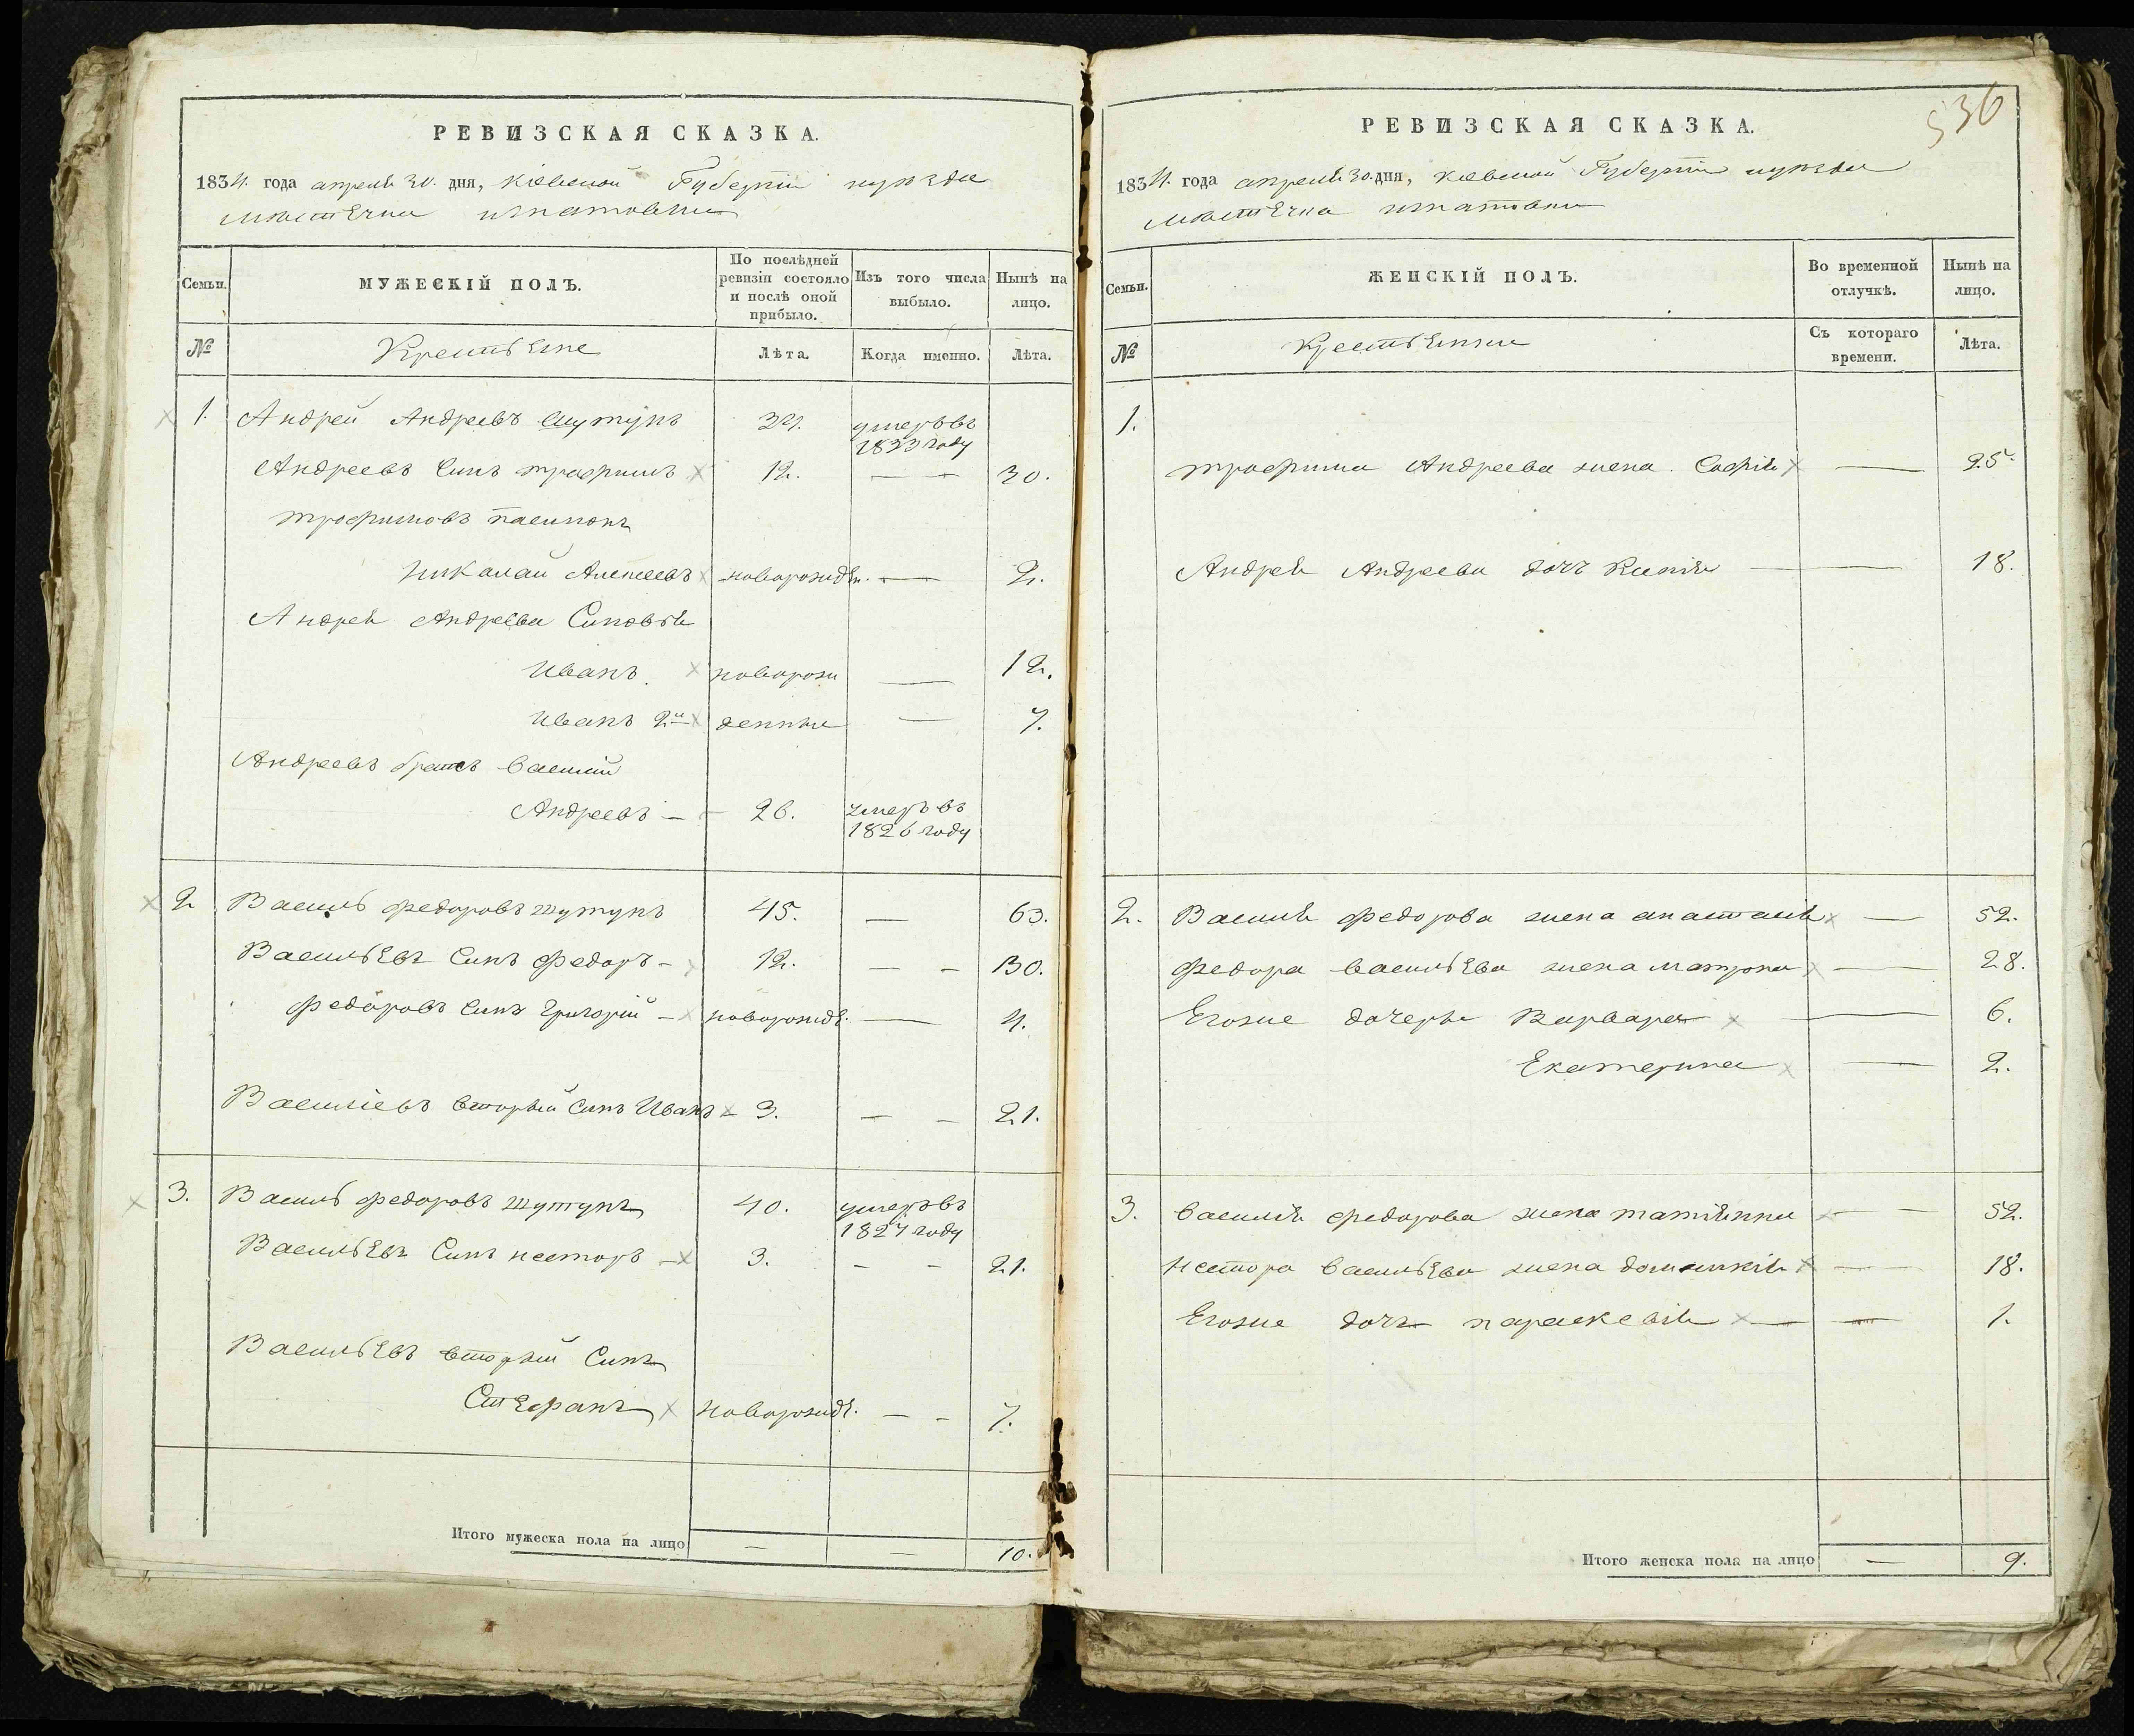 РЕВИЗСКАЯ СКАЗКА.
1834. года апреля 30. дня, Киевской Губернии
местечка Игнатовки
Семьи.
МУЖЕСКІЙ ПОЛЪ.
По послѣдней ревизіи состояло и послѣ оной прибыло.
Изъ того числа выбыло.
Нынѣ на лицо.
№
Крестьяне
Лѣта.
Когда именно.
Лѣта.
1. Андрей Андреевъ Шутунъ 34. умеръ въ 1833 году
Андреевъ Синъ трофимъ 12. — — 30.
трофимовъ пасинокъ
Николай Алексеевъ новорожде. — 2.
Андрея Андреева Синовья
Иванъ. новорож — 12.
Иванъ 2й денные — 7.
Андреевъ братъ Василий
Андреевъ — 26. умеръ въ 1826 году
2 Василь федоровъ шутунъ 45. — 63.
Васильевъ Синъ Федоръ — 12. — — 30.
федоровъ Синъ Григорій — новорожде. — 4.
Василіевъ вторый Синъ Иванъ — 3. — — 21.
3. Василь федоровъ шутунъ 40. умеръ въ 1827 году
Васильевъ Синъ нестор — 3. — — 21.
Васильевъ вторый Синъ
Стефанъ новорожде. — — 7.
Итого мужеска пола на лицо — — 10.
536
РЕВИЗСКАЯ СКАЗКА.
1834. года апреля 30. дня, Киевской Губернии
местечка Игнатовки
Семьи.
ЖЕНСКІЙ ПОЛЪ.
Во временной отлучкѣ.
Нынѣ на лицо.
№
Крестьянки
Съ котораго времени.
Лѣта.
1.
трофима Андреева жена. Софія — 25.
Андрея Андреева дочъ Ксенія — — 18.
2. Василя федорова жена анастасія — 52.
федора васильева жена матрона — 28.
Егоже дочеры Варвара — 6.
Екатерина — 2.
3. василія федорова жена татіянна — — 52.
нестора васильева жена домникія — 18.
Егоже дочъ параскевія — — 1.
Итого женска пола на лицо — 9.